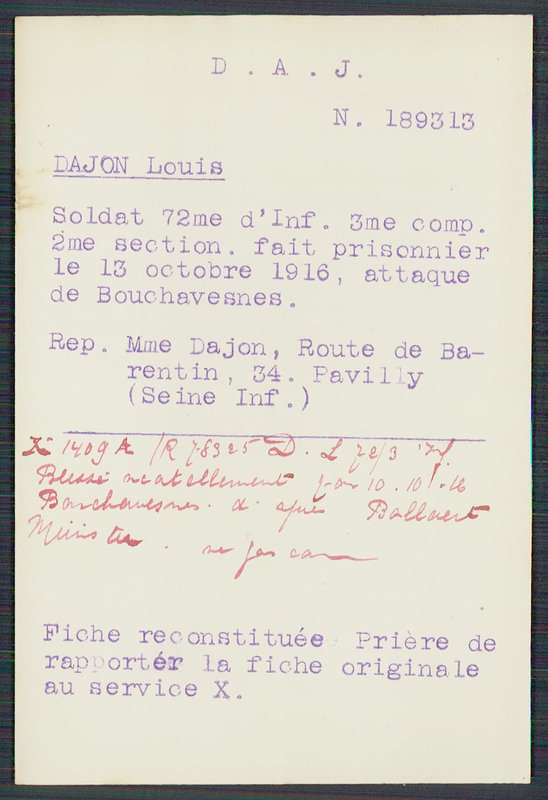 D . A . J.
N. 189313
DAJON Louis
Soldat 72me d'Inf. 3me comp.
2me section. fait prisonnier
le 13 octobre 1916, attaque
de Bouchavesnes.
Rep. Mme Dajon, Route de Ba-
rentin, 34. Pavilly
(Seine Inf.)
1409 A /R 78325 D. L 72/3
Blessé 10.10.16
Bouchavesnes. d' après Ballaert
Ministre. ne pas
Fiche reconstituée Prière de
rapportér la fiche originale
au service X.